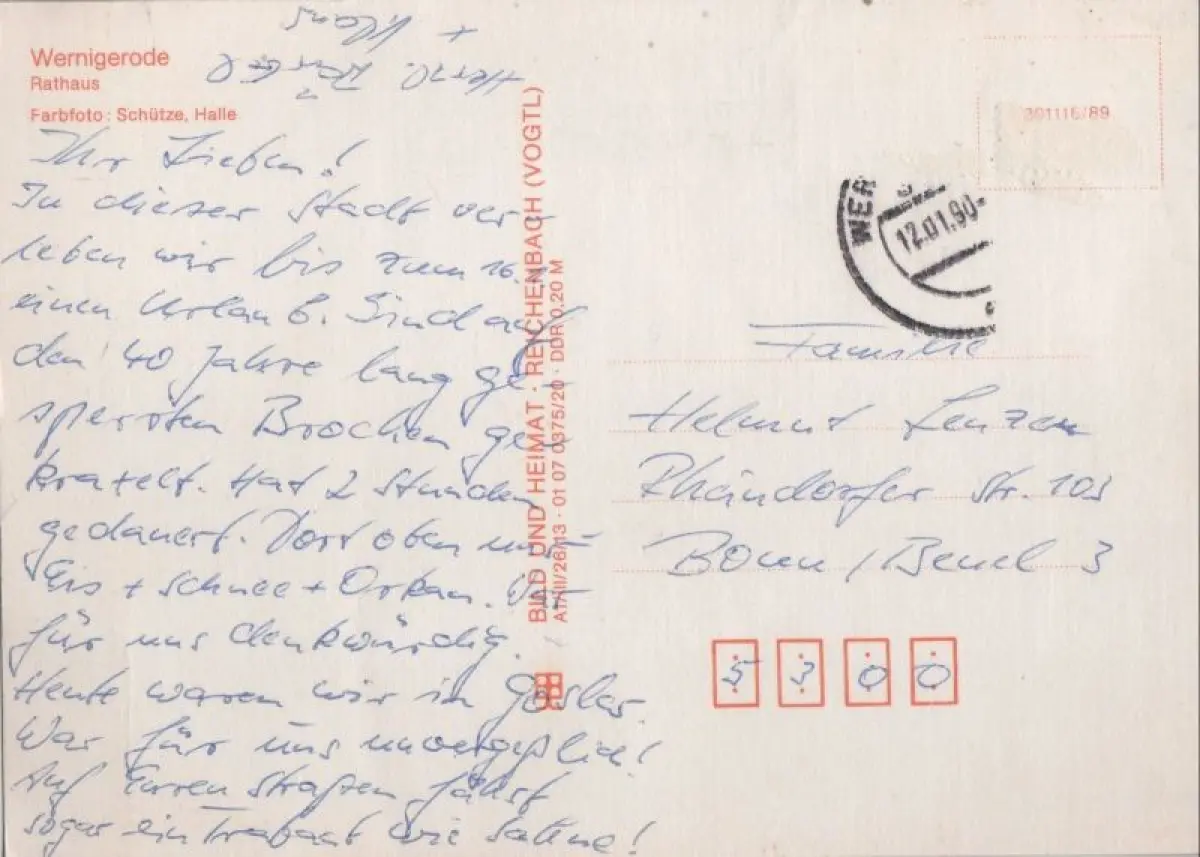 Wernigerode
Rathaus
Farbfoto: Schütze, Halle
Ihr Lieben!
In dieser Stadt ver-
leben wir bis zum 16.
einen Urlaub. Sind auf
den 40 Jahre lang ge-
sperrten Brocken ge-
kraxelt. Hat 2 Stunden
gedauert. Dort oben nur
Eis + Schnee + Orkan. War
für uns denkwürdig.
Heute waren wir in Goslar.
War für uns unvergeßlich!
Auf Euren Straßen fährt
sogar ein Trabant wie Sahne!
Herzl. Grüße
+ Klaus
BILD UND HEIMAT · REICHENBACH (VOGTL)
A1/III/26/13 · 01 07 0375/20 · DDR 0,20 M
301116/89
WER
12.01.90-
Familie
Helmut Lenzen
Rhöndorfer Str. 103
Bonn / Beuel 3
5300